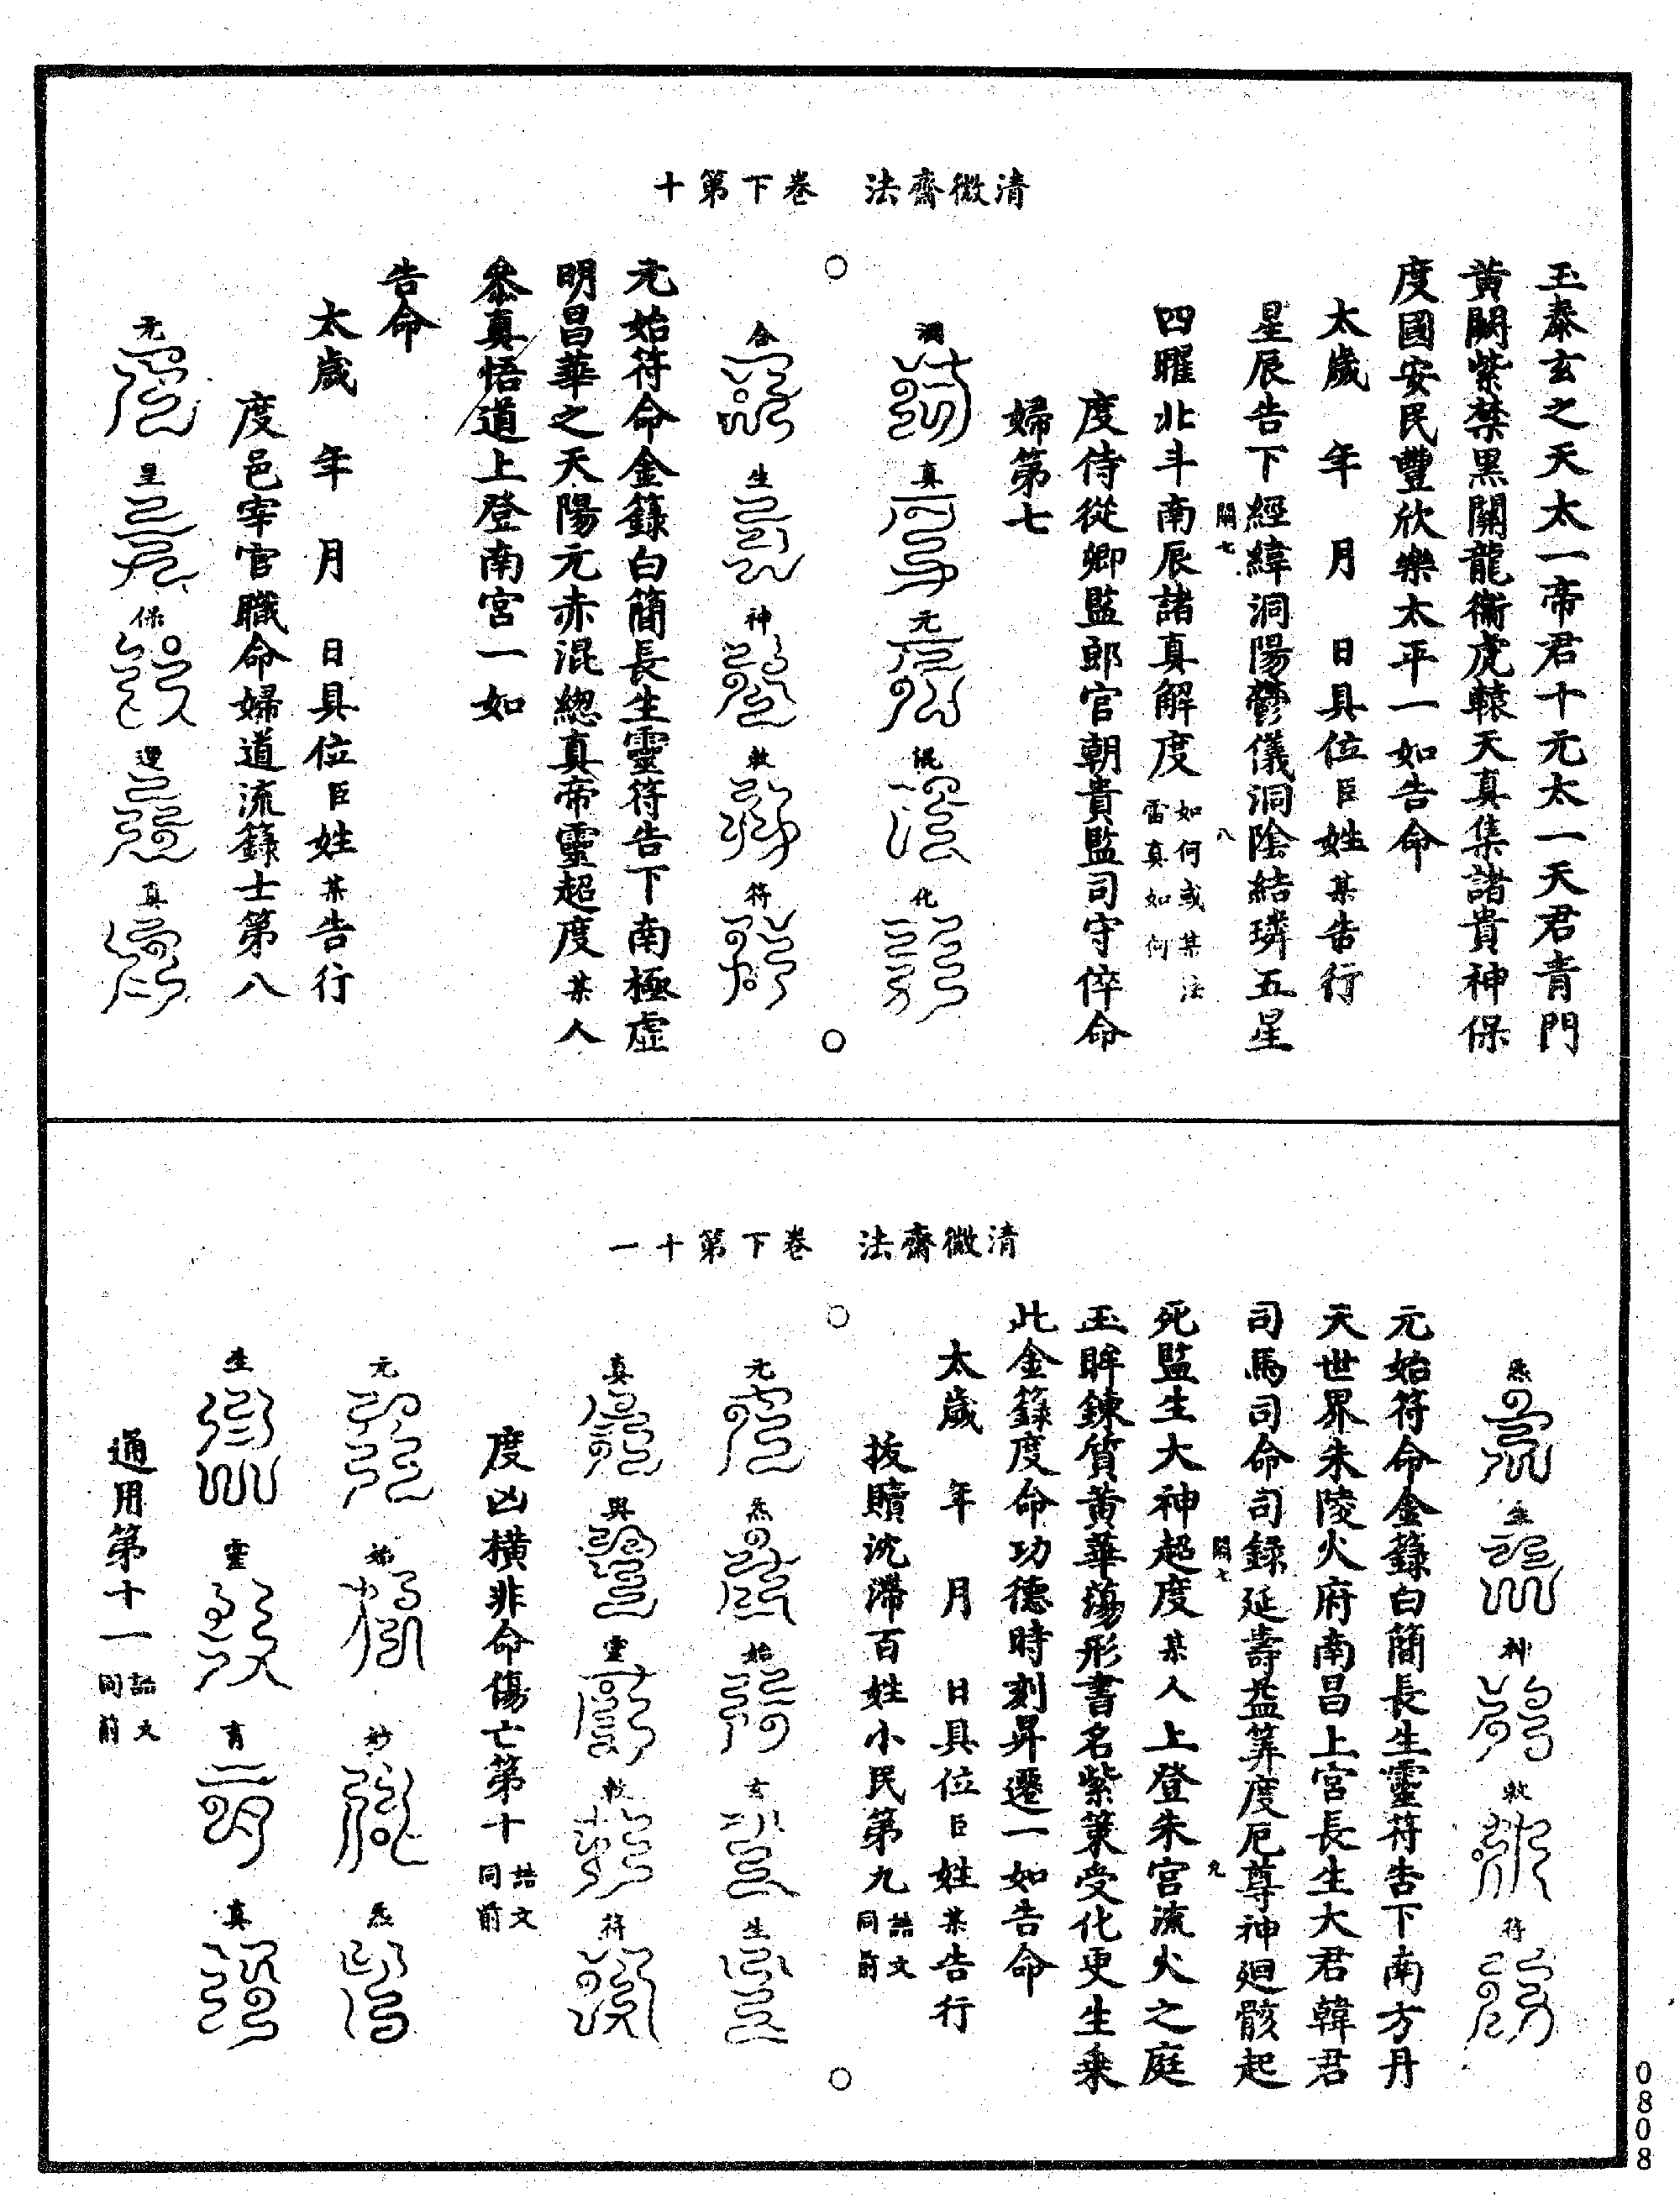 清微齋法　卷下第十
玉泰玄之天太一帝君十元太一天君青門
黃闕紫禁黑關龍衞虎轅天真集諸貴神保
度國安民豐欣樂太平一如告命
太歲　年　月　日具位臣姓某告行
星辰告下經緯洞陽鬱儀洞陰結璘五星
關七　八
四曜北斗南辰諸真解度如何或某法
雷真如何
度侍從卿監郎官朝貴監司守倅命
婦第七
洞　真　元　混　化
合　生　神　敕　符
元始符命金籙白簡長生靈符告下南極虛
明昌華之天陽元赤混緫真帝靈超度某人
叅真悟道上登南宮一如
告命
太歲　年　月　日具位臣姓某告行
度邑宰官職命婦道流籙士第八
元　皇　保　運　真
清微齋法　卷下第十一
炁　生　神　敕　符
元始符命金籙白簡長生靈符告下南方丹
天世界朱陵火府南昌上宮長生大君韓君
司馬司命司錄延壽益筭度厄尊神廻骸起
關七　九
死監生大神超度某人上登朱宮流火之庭
玉眸鍊質黃華蕩形書名紫策受化更生乘
此金籙度命功德時刻昇遷一如告命
太歲　年　月　日具位臣姓某告行
拔贖沈滯百姓小民第九誥文
同前
元　炁　始　玄　生
真　與　靈　敕　符
度凶橫非命傷亡第十誥文
同前
元　始　妙　炁
生　靈　育　真
通用第十一誥文
同前
0808